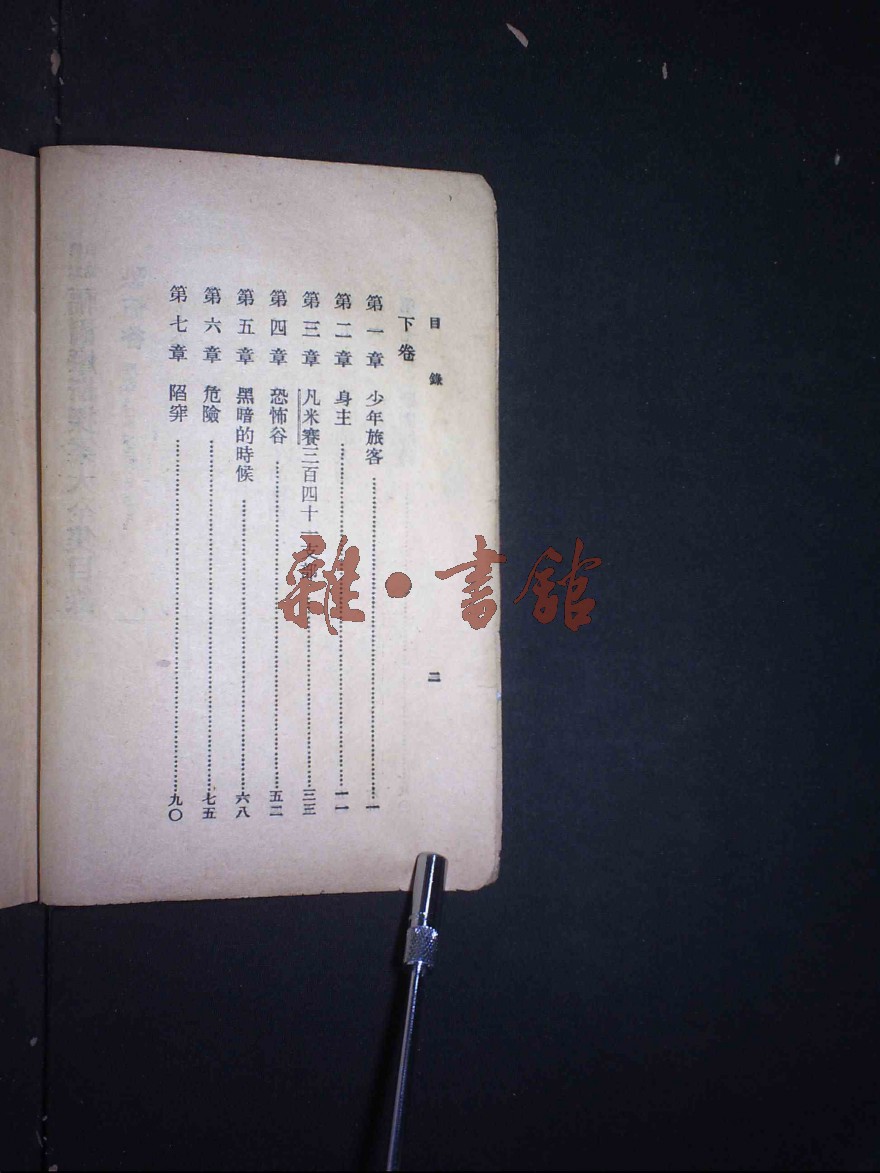 目錄
二
下卷
第一章 少年旅客……一
第二章 身主……一一
第三章 凡米賽三百四十一支部……三三
第四章 恐怖谷……五二
第五章 黑暗的時候……六八
第六章 危險……七五
第七章 陷穽……九〇
雜·書館